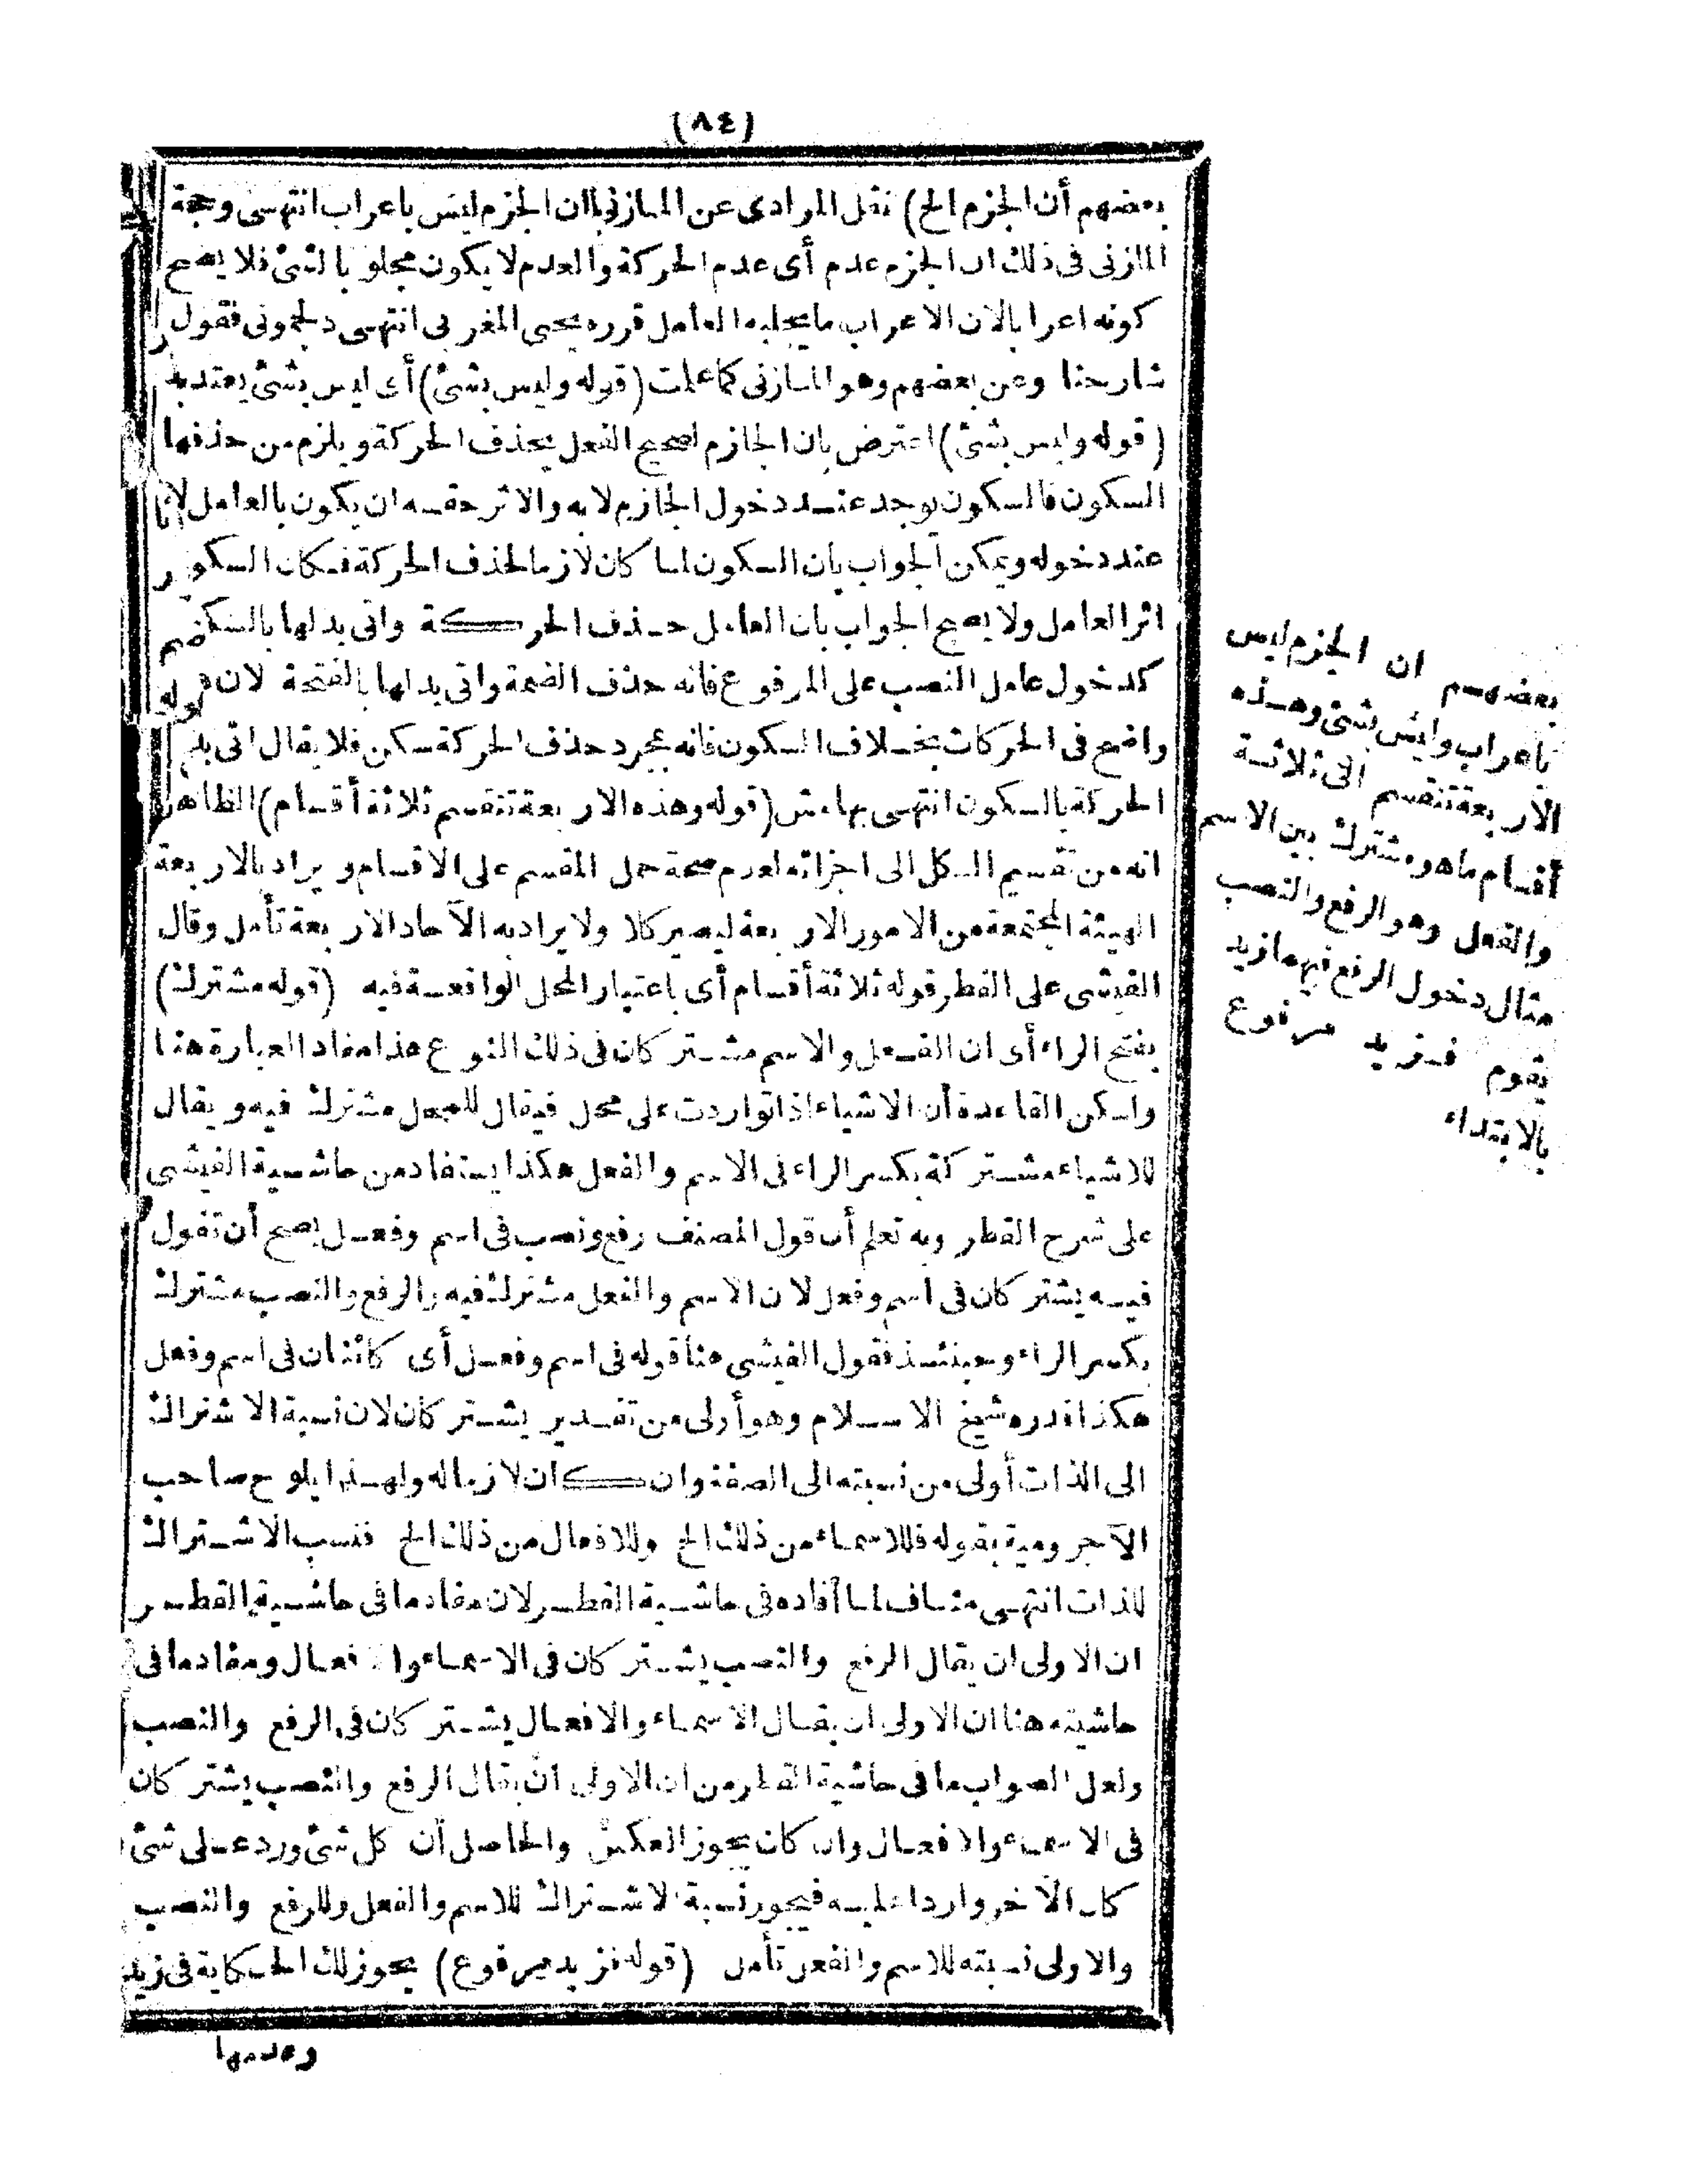 (٨٤)
بعضهم أن الجزم الخ) نقل المرادى عن المازنى بان الجزم ليس باعراب انتهى وحجة
المازنى فى ذلك ان الجزم عدم أى عدم الحركة والعدم لا يكون مجلوبا لشئ فلا يصح
كونه اعرابا لان الاعراب ما يجلبه العامل قرره يحيى المغربى انتهى دلجمونى فقول
شارحنا وعن بعضهم وهو المازنى كما علمت (قوله وليس بشئ) أى ليس بشئ يعتد به
(قوله وليس بشئ) اعترض بان الجازم لصحيح الفعل يحذف الحركة ويلزم من حذفها
السكون فالسكون يوجد عند دخول الجازم لا به والاثر حقه ان يكون بالعامل لا
عند دخوله ويمكن الجواب بان السكون لما كان لازما لحذف الحركة فكان السكون
اثر العامل ولا يصح الجواب بان العامل حذف الحركة واتى بدلها بالسكون
كدخول عامل النصب على المرفوع فانه حذف الضمة واتى بدلها بالفتحة لان
واضح فى الحركات بخلاف السكون فانه بمجرد حذف الحركة سكن فلا يقال اتى بدل
الحركة بالسكون انتهى بهامش (قوله وهذه الاربعة تنقسم ثلاثة أقسام) الظاهر
انه من تقسيم الكل الى اجزائه لعدم صحة حمل المقسم على الاقسام ويراد بالاربعة
الهيئة المجتمعة من الامور الاربعة ليصير كلا ولا يراد به الآحاد الاربعة تأمل وقال
الفيشى على القطر قوله ثلاثة أقسام أى باعتبار المحل الواقعة فيه (قوله مشترك)
بفتح الراء أى ان الفعل والاسم مشتركان فى ذلك النوع هذا مفاد العبارة هنا
ولكن القاعدة أن الاشياء اذا تواردت على محل فيقال للمحل مشترك فيه ويقال
للاشياء مشتركة بكسر الراء فى الاسم والفعل هكذا يستفاد من حاشية الفيشى
على شرح القطر وبه تعلم أن قول المصنف رفع ونصب فى اسم وفعل يصح أن تقول
فيه يشتركان فى اسم وفعل لان الاسم والفعل مشترك فيه والرفع والنصب مشترك
بكسر الراء وحينئذ فقول الفيشى هنا قوله فى اسم وفعل أى كائنان فى اسم وفعل
هكذا قدره شيخ الاسلام وهو أولى من تقدير يشتركان لان نسبة الاشتراك
الى الذات أولى من نسبته الى الصفة وان كان لازما له ولهذا يلوح صاحب
الآجرومية بقوله فللاسماء من ذلك الخ وللافعال من ذلك الخ فنسب الاشتراك
للذات انتهى مناف لما أفاده فى حاشية القطر لان مفاد ما فى حاشية القطر
ان الاولى ان يقال الرفع والنصب يشتركان فى الاسماء والافعال ومفاد ما فى
حاشيته هنا ان الاولى ان يقال الاسماء والافعال يشتركان فى الرفع والنصب
ولعل الصواب ما فى حاشية القطر من ان الاولى ان يقال الرفع والنصب يشتركان
فى الاسماء والافعال وان كان يجوز العكس والحاصل أن كل شئ ورد على شئ
كان الآخر واردا عليه فيجوز نسبة الاشتراك للاسم والفعل وللرفع والنصب
والاولى نسبته للاسم والفعل تأمل (قوله فزيد مرفوع) يجوز لك الحكاية فى زيد
وعدمها
بعضهم ان الجزم ليس
باعراب وليس بشئ وهذه
الاربعة تنقسم الى ثلاثة
أقسام ما هو مشترك بين الاسم
والفعل وهو الرفع والنصب
مثال دخول الرفع فيهما زيد
يقوم فزيد مرفوع
بالابتداء